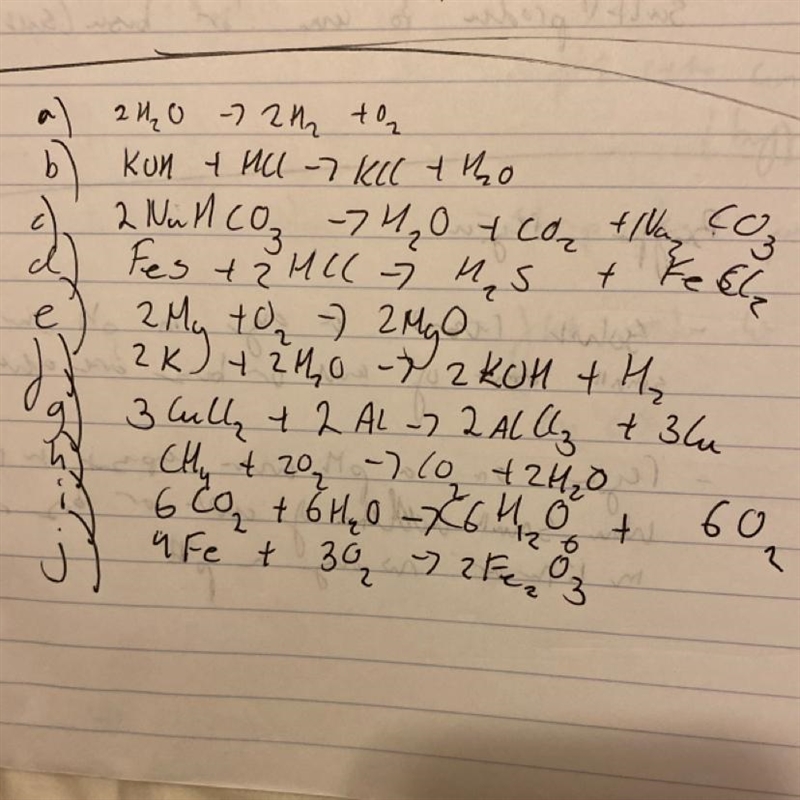 a) 2H₂O → 2H₂ + O₂
b) KOH + HCl → KCl + H₂O
c) 2NaHCO₃ → H₂O + CO₂ + Na₂CO₃
d) FeS + 2HCl → H₂S + FeCl₂
e) 2Mg + O₂ → 2MgO
f) 2K + 2H₂O → 2KOH + H₂
g) 3CuCl₂ + 2Al → 2AlCl₃ + 3Cu
h) CH₄ + 2O₂ → CO₂ + 2H₂O
i) 6CO₂ + 6H₂O → C6H₁₂O₆ + 6O₂
j) 4Fe + 3O₂ → 2Fe₂O₃